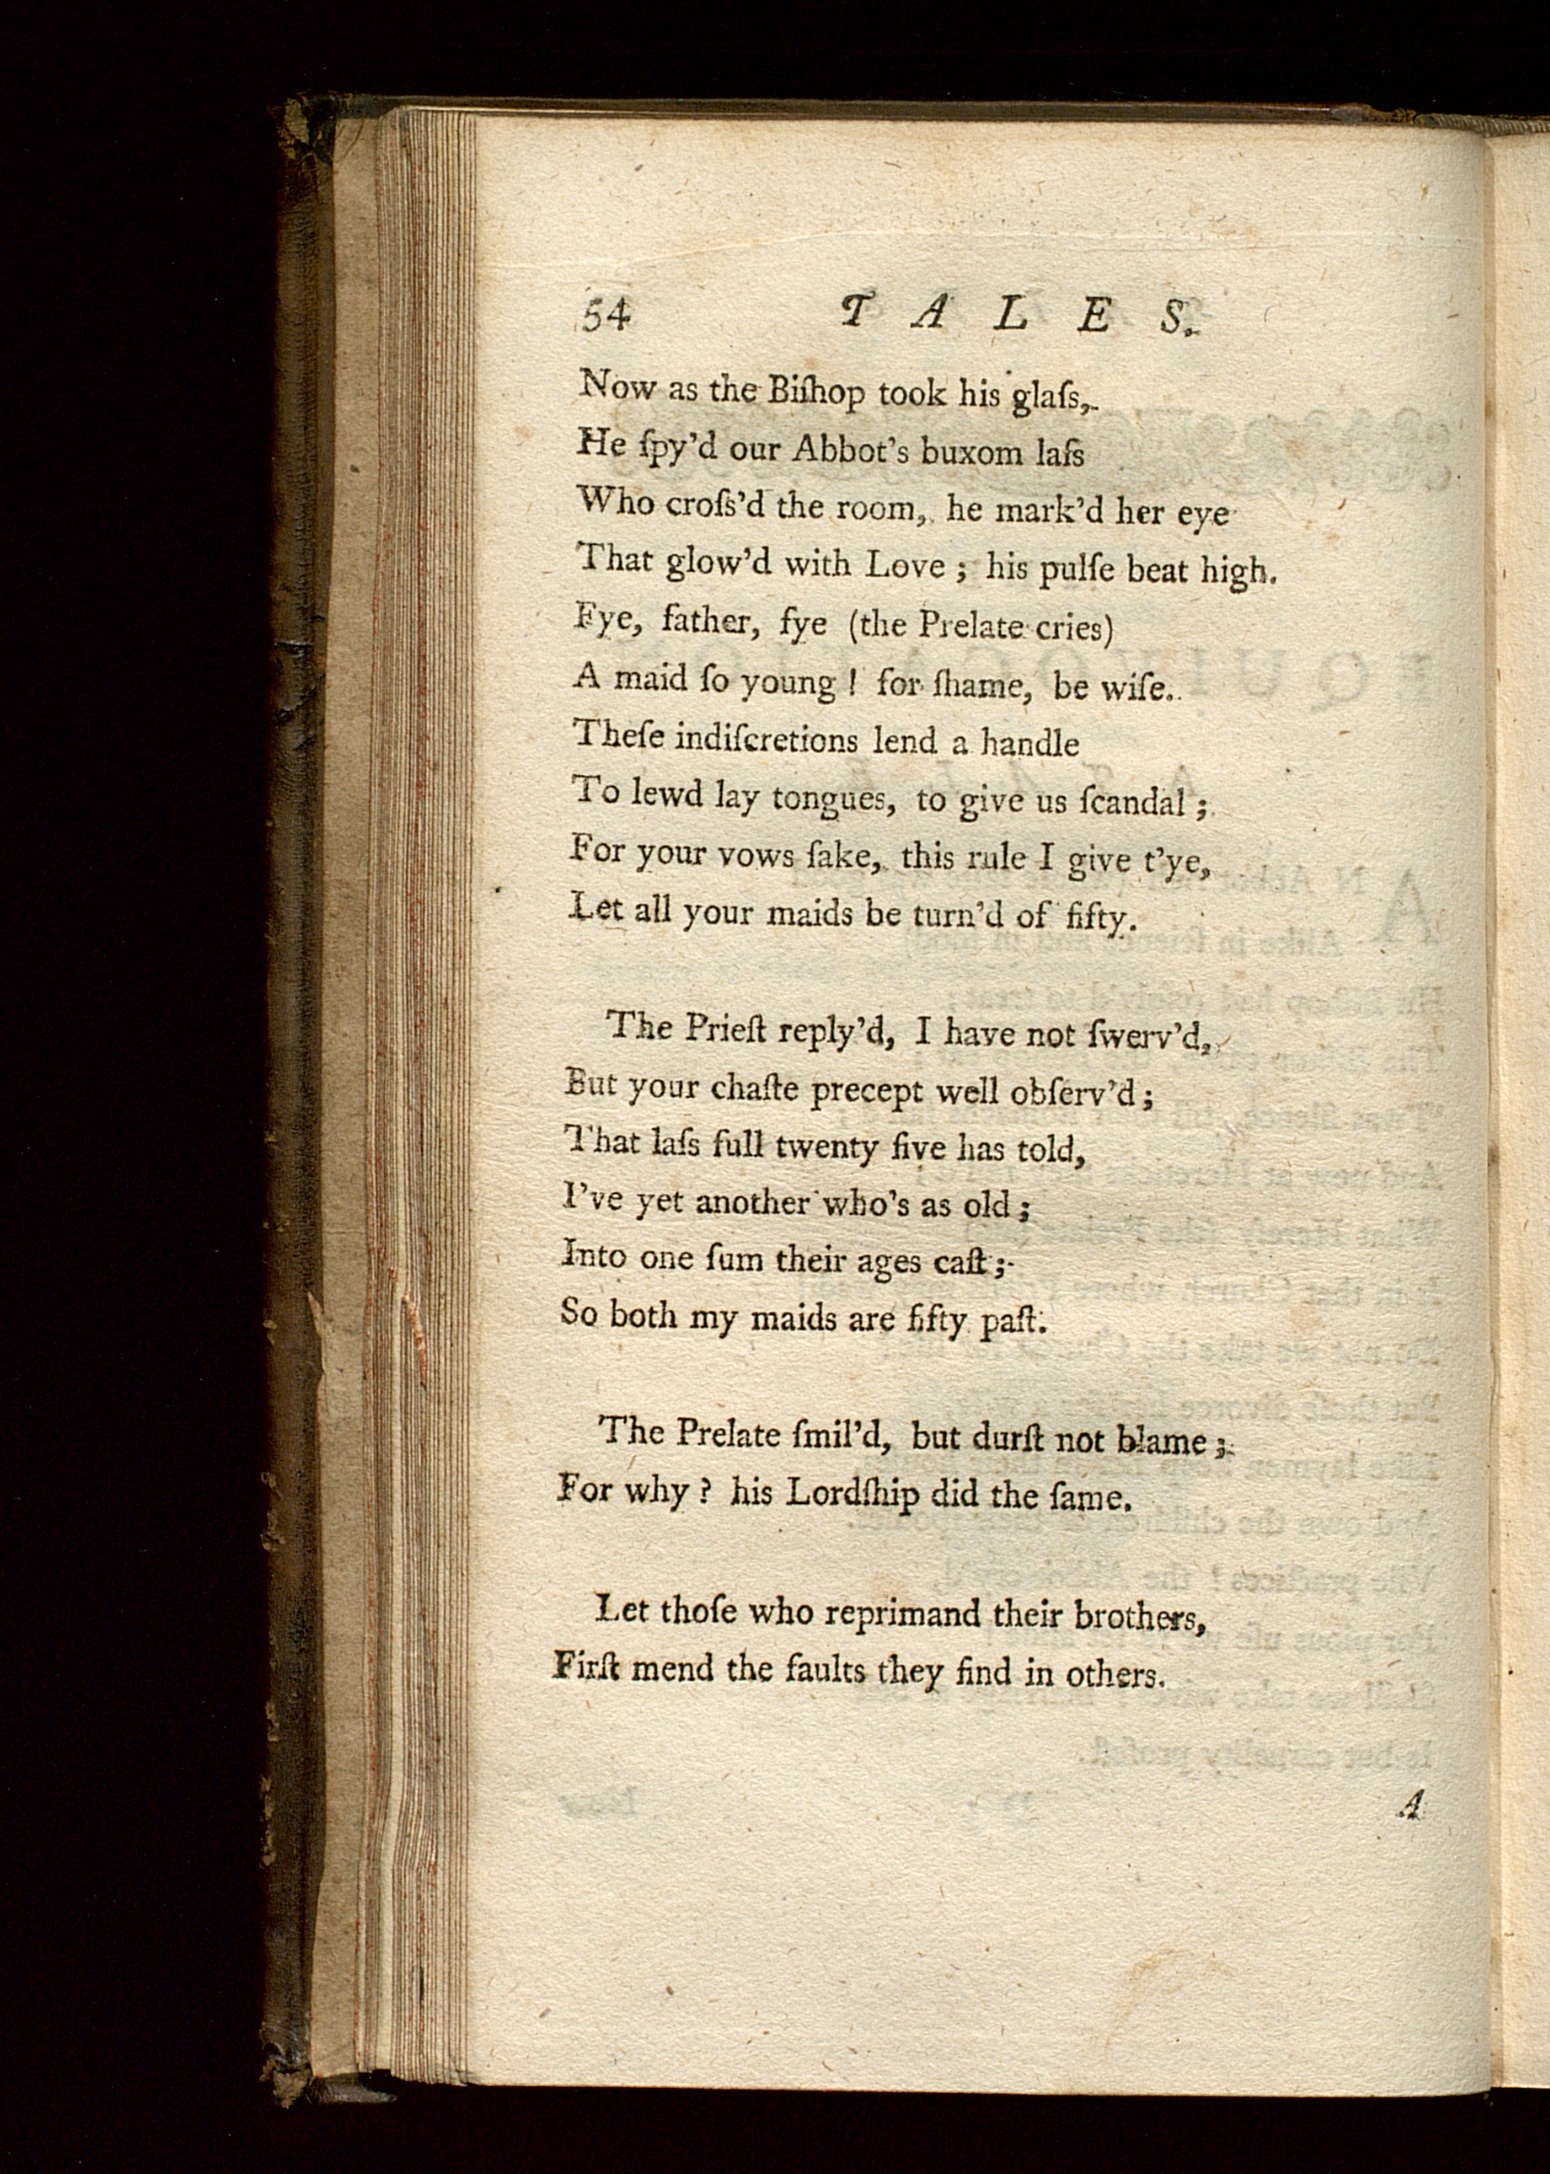 54 TALES.
Now as the Biſhop took his glaſs,
He ſpy'd our Abbot's buxom laſs
Who croſs'd the room, he mark'd her eye
That glow'd with Love ; his pulſe beat high.
Fye, father, fye (the Prelate cries)
A maid ſo young ! for ſhame, be wiſe.
Theſe indiſcretions lend a handle
To lewd lay tongues, to give us ſcandal ;
For your vows ſake, this rule I give t'ye,
Let all your maids be turn'd of fifty.
The Prieſt reply'd, I have not ſwerv'd,
But your chaſte precept well obſerv'd ;
That laſs full twenty five has told,
I've yet another who's as old ;
Into one ſum their ages caſt ;
So both my maids are fifty paſt.
The Prelate ſmil'd, but durſt not blame ;
For why ? his Lordſhip did the ſame.
Let thoſe who reprimand their brothers,
Firſt mend the faults they find in others.
A